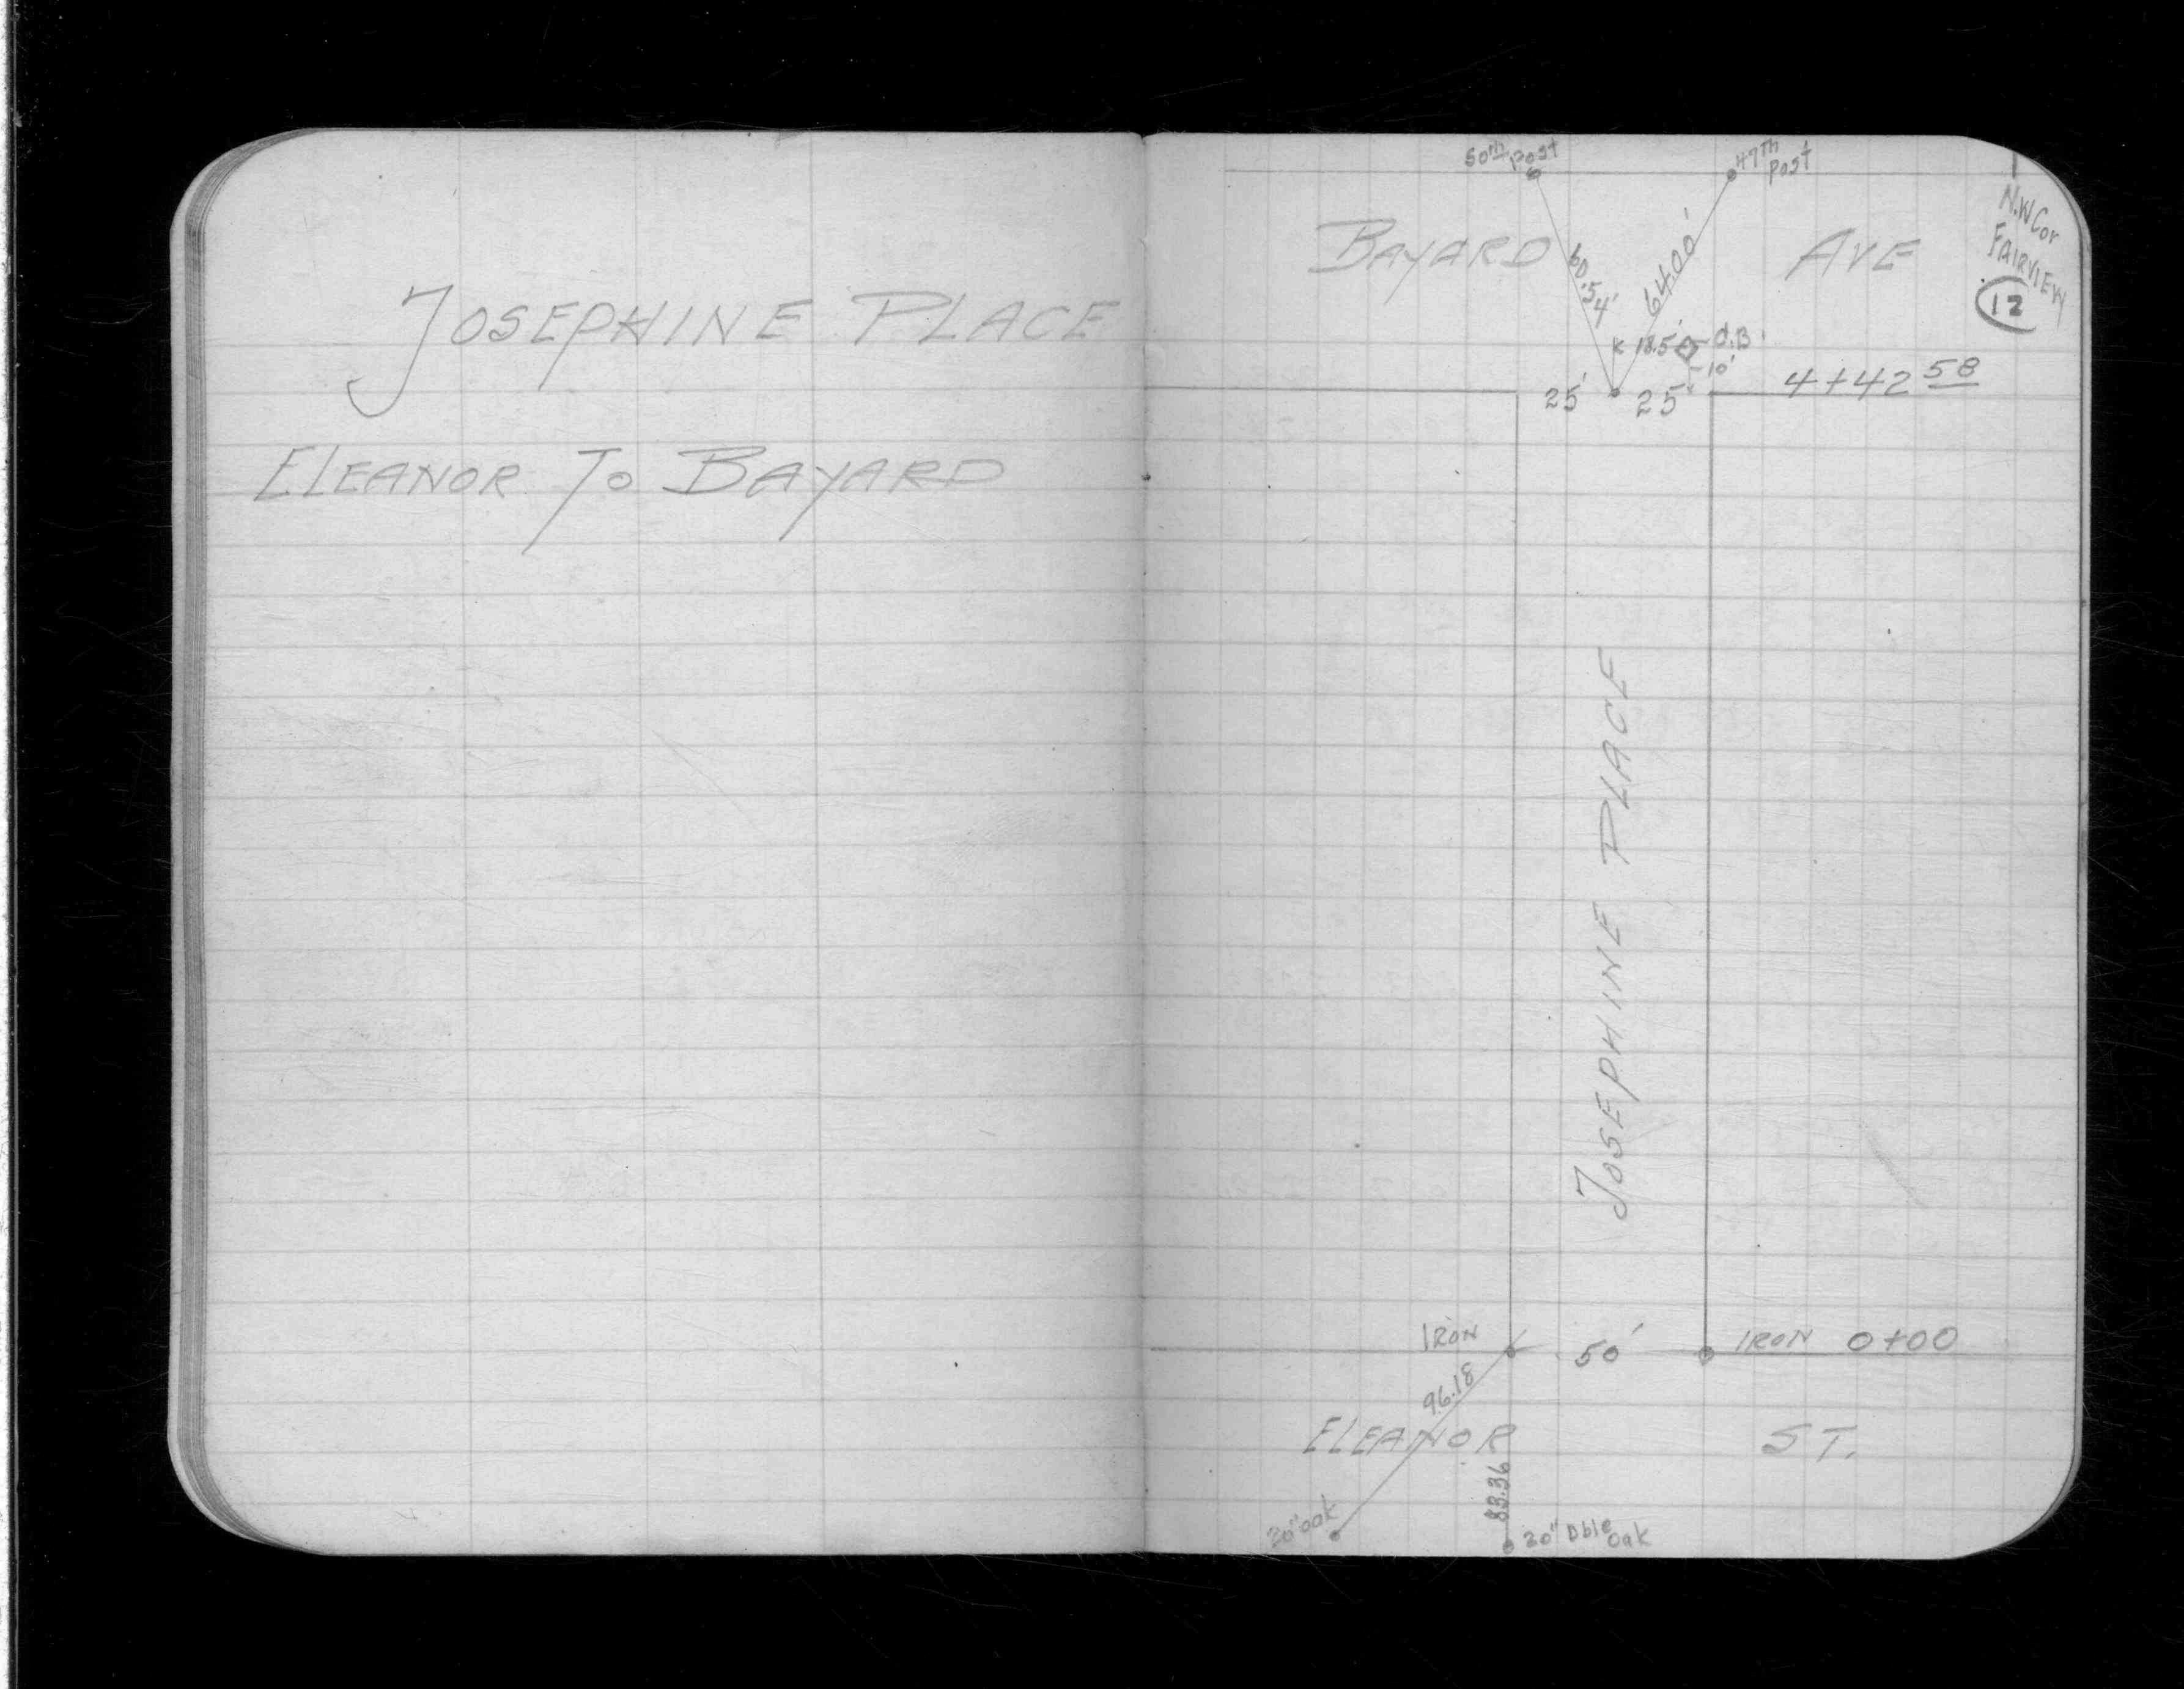 JOSEPHINE PLACE
ELEANOR TO BAYARD
50th post
47TH post
N.W Cor
FAIRVIEW
12
BAYARD AVE
60.54'
64.00'
18.5'
10'
25' 25'
4+42 58
JOSEPHINE PLACE
IRON 50' IRON 0+00
96.18
ELEANOR ST.
83.36
20" oak
20" Dble oak